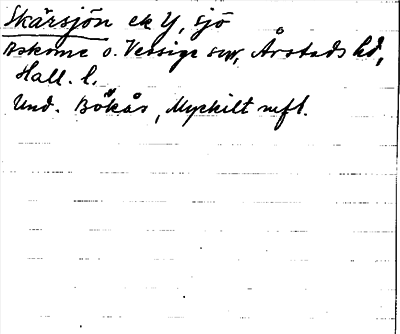 Skärsjön ek Y, sjö
Askome o. Vessige snr, Årstads hd,
Hall. l.
Und. Bökås, Myckilt nefl.